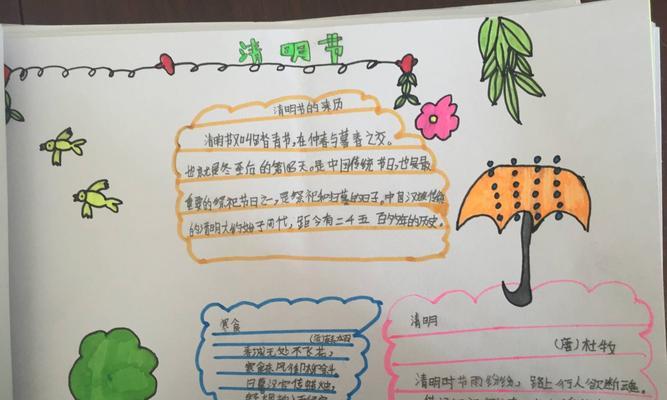 清明节
清明节的来历
清明节又叫踏青节,在仲春与暮春之交。
也就是冬至后的第108天。是中国传统节日,也是最
重要的祭祀节日之一,是祭祀和扫墓的日子。中国汉族传统
的清明大约始于周代,距今有二千五百多年的历史。
寒食
(唐)韩翃
春城无处不飞花,
寒食东风御柳斜。
日暮汉宫传蜡烛,
清明
(唐)杜牧
清明时节雨纷纷,路上行人欲断魂。